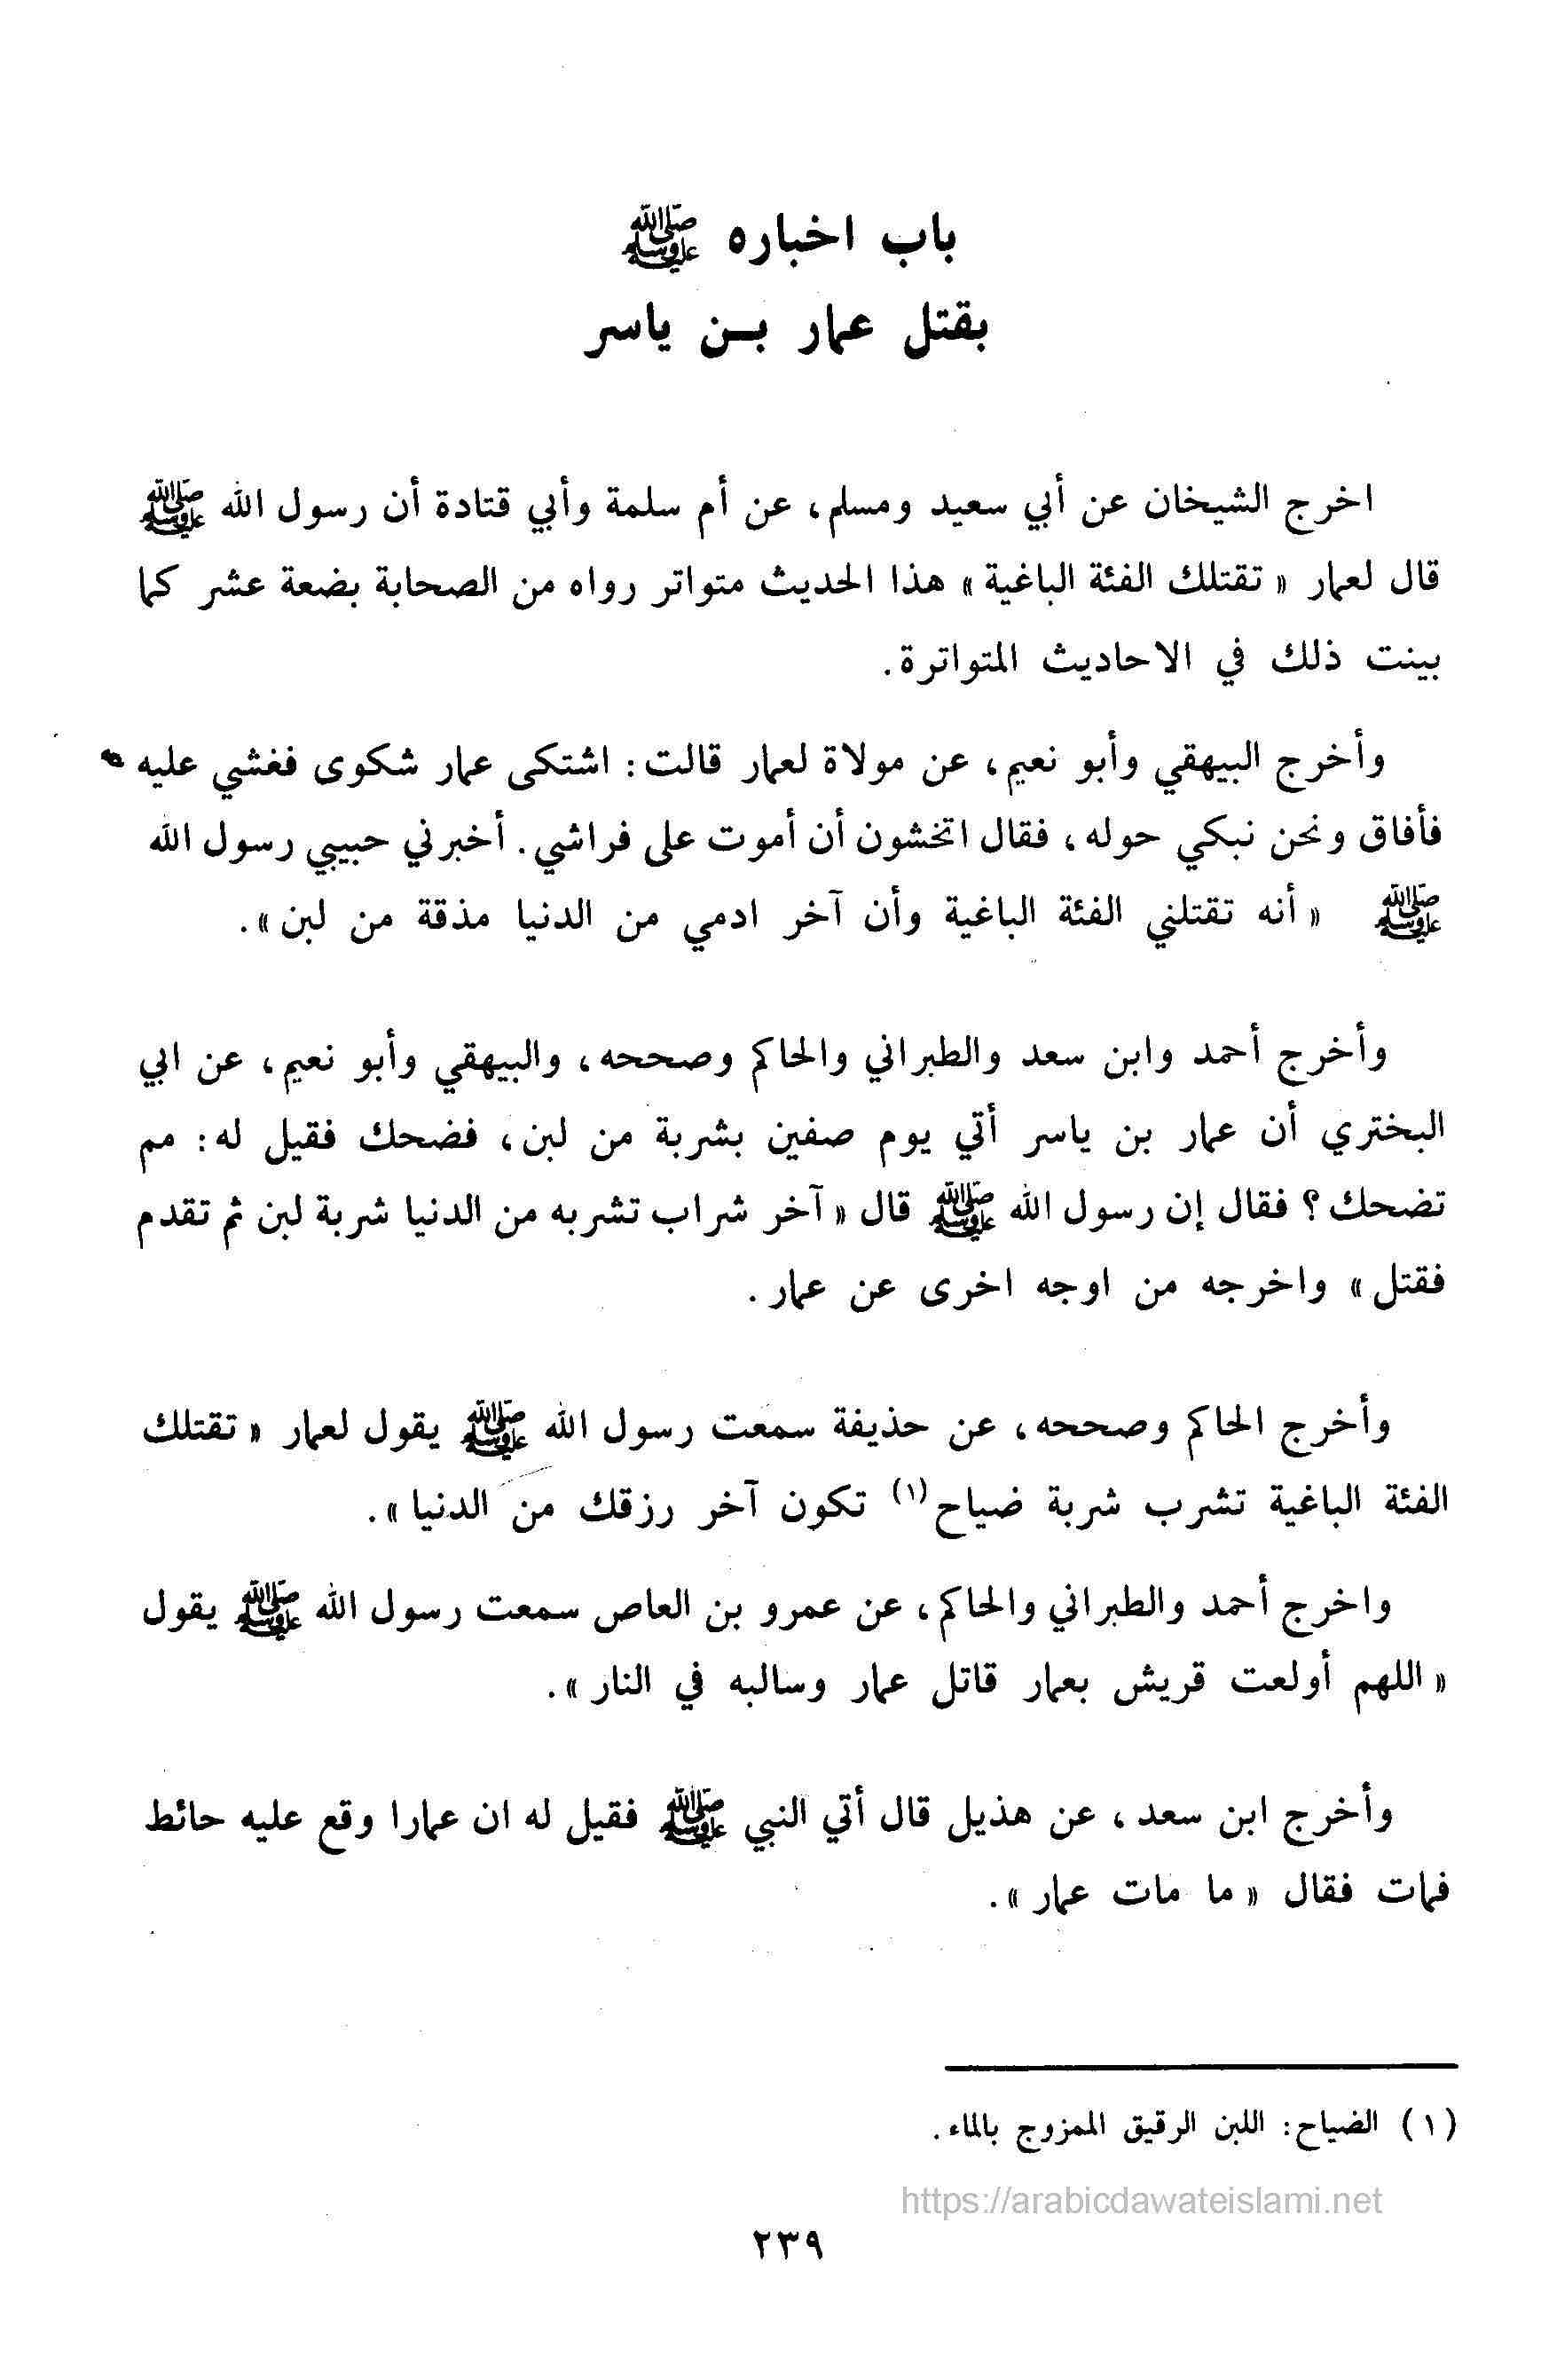 باب اخباره ﷺ
بقتل عمار بـن ياسر
اخرج الشيخان عن أبي سعيد ومسلم، عن أم سلمة وأبي قتادة أن رسول الله ﷺ
قال لعمار « تقتلك الفئة الباغية » هذا الحديث متواتر رواه من الصحابة بضعة عشر كما
بينت ذلك في الاحاديث المتواترة.
وأخرج البيهقي وأبو نعيم، عن مولاة لعمار قالت: اشتكى عمار شكوى فغشي عليه
فأفاق ونحن نبكي حوله، فقال اتخشون أن أموت على فراشي. أخبرني حبيبي رسول الله
ﷺ « أنه تقتلني الفئة الباغية وأن آخر ادمي من الدنيا مذقة من لبن ».
وأخرج أحمد وابن سعد والطبراني والحاكم وصححه، والبيهقي وأبو نعيم، عن ابي
البختري أن عمار بن ياسر أتي يوم صفين بشربة من لبن، فضحك فقيل له: مم
تضحك؟ فقال إن رسول الله ﷺ قال « آخر شراب تشربه من الدنيا شربة لبن ثم تقدم
فقتل » واخرجه من اوجه اخرى عن عمار.
وأخرج الحاكم وصححه، عن حذيفة سمعت رسول الله ﷺ يقول لعمار « تقتلك
الفئة الباغية تشرب شربة ضياح(١) تكون آخر رزقك من الدنيا ».
واخرج أحمد والطبراني والحاكم، عن عمرو بن العاص سمعت رسول الله ﷺ يقول
« اللهم أولعت قريش بعمار قاتل عمار وسالبه في النار ».
وأخرج ابن سعد، عن هذيل قال أتي النبي ﷺ فقيل له ان عمارا وقع عليه حائط
فمات فقال « ما مات عمار ».
(١) الضياح: اللبن الرقيق الممزوج بالماء.
https://arabicdawateislami.net
٢٣٩